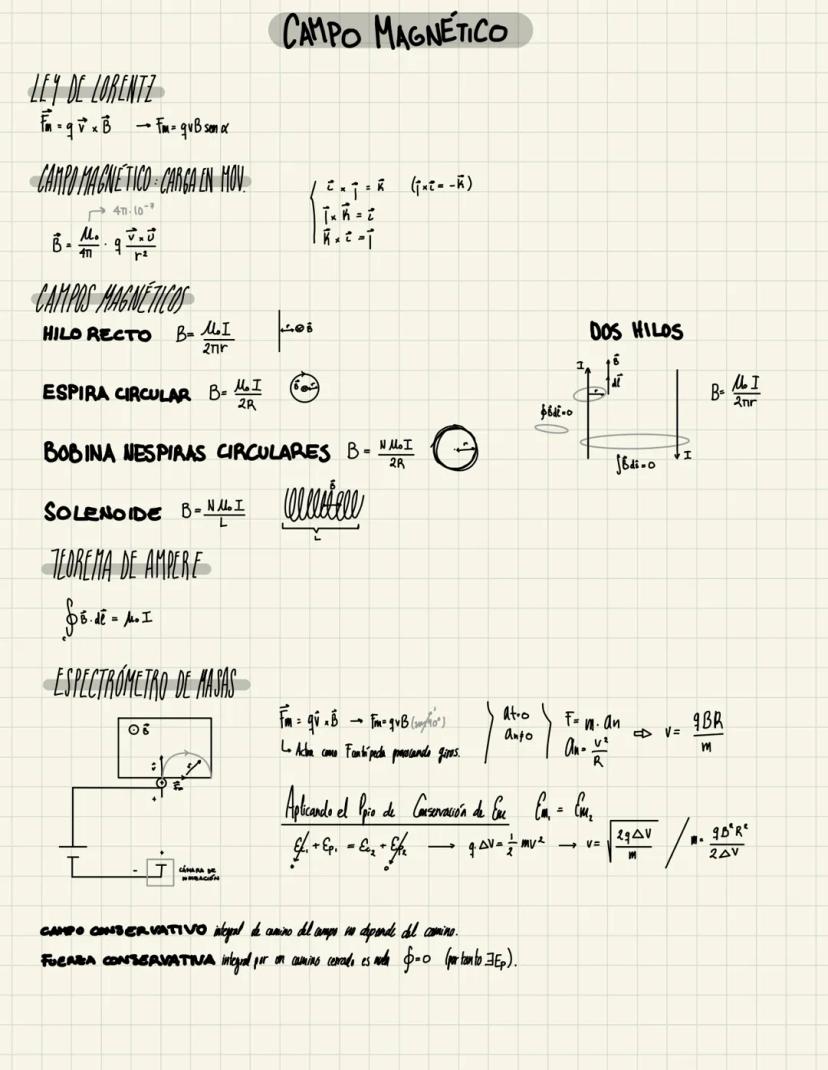 CAMPO MAGNÉTICO
LEY DE LORENTZ
F⃗m = q v⃗ × B⃗ → Fm = qvB sen α
CAMPO MAGNÉTICO: CARGA EN MOV.
→ 4π·10⁻⁷
B⃗ = μ₀/4π · q v⃗×u⃗/r²
i⃗ × j⃗ = k⃗ (j⃗×i⃗ = -k⃗)
j⃗ × k⃗ = i⃗
k⃗ × i⃗ = j⃗
CAMPOS MAGNÉTICOS
HILO RECTO B = μ₀I/2πr r B⃗
ESPIRA CIRCULAR B = μ₀I/2R
BOBINA N ESPIRAS CIRCULARES B = Nμ₀I/2R r
SOLENOIDE B = Nμ₀I/L B⃗ L
DOS HILOS
I B⃗ dl⃗ r
∮B⃗dl⃗=0
∫B⃗dl⃗=0 I
B = μ₀I/2πr
TEOREMA DE AMPERE
∮c B⃗·dl⃗ = μ₀I
ESPECTRÓMETRO DE MASAS
⊙ B⃗
v⃗ r F⃗m
+
+
-
CÁMARA DE IONIZACIÓN
F⃗m = qv⃗ × B⃗ → Fm = qvB (sen 90°)
↳ Actúa como F centrípeta provocando giros.
at=0
an≠0
F = m·an
an = v²/R
⇒ v = qBR/m
Aplicando el Ppio de Conservación de Em Em₁ = Em₂
Ec₁ + Ep₁ = Ec₂ + Ep₂ → q·ΔV = 1/2 mv² → v = √(2qΔV/m) / m = qB²R²/2ΔV
0 0
CAMPO CONSERVATIVO integral de camino del campo no depende del camino.
FUERZA CONSERVATIVA integral por un camino cerrado es nula ∮=0 (por tanto ∃Ep).